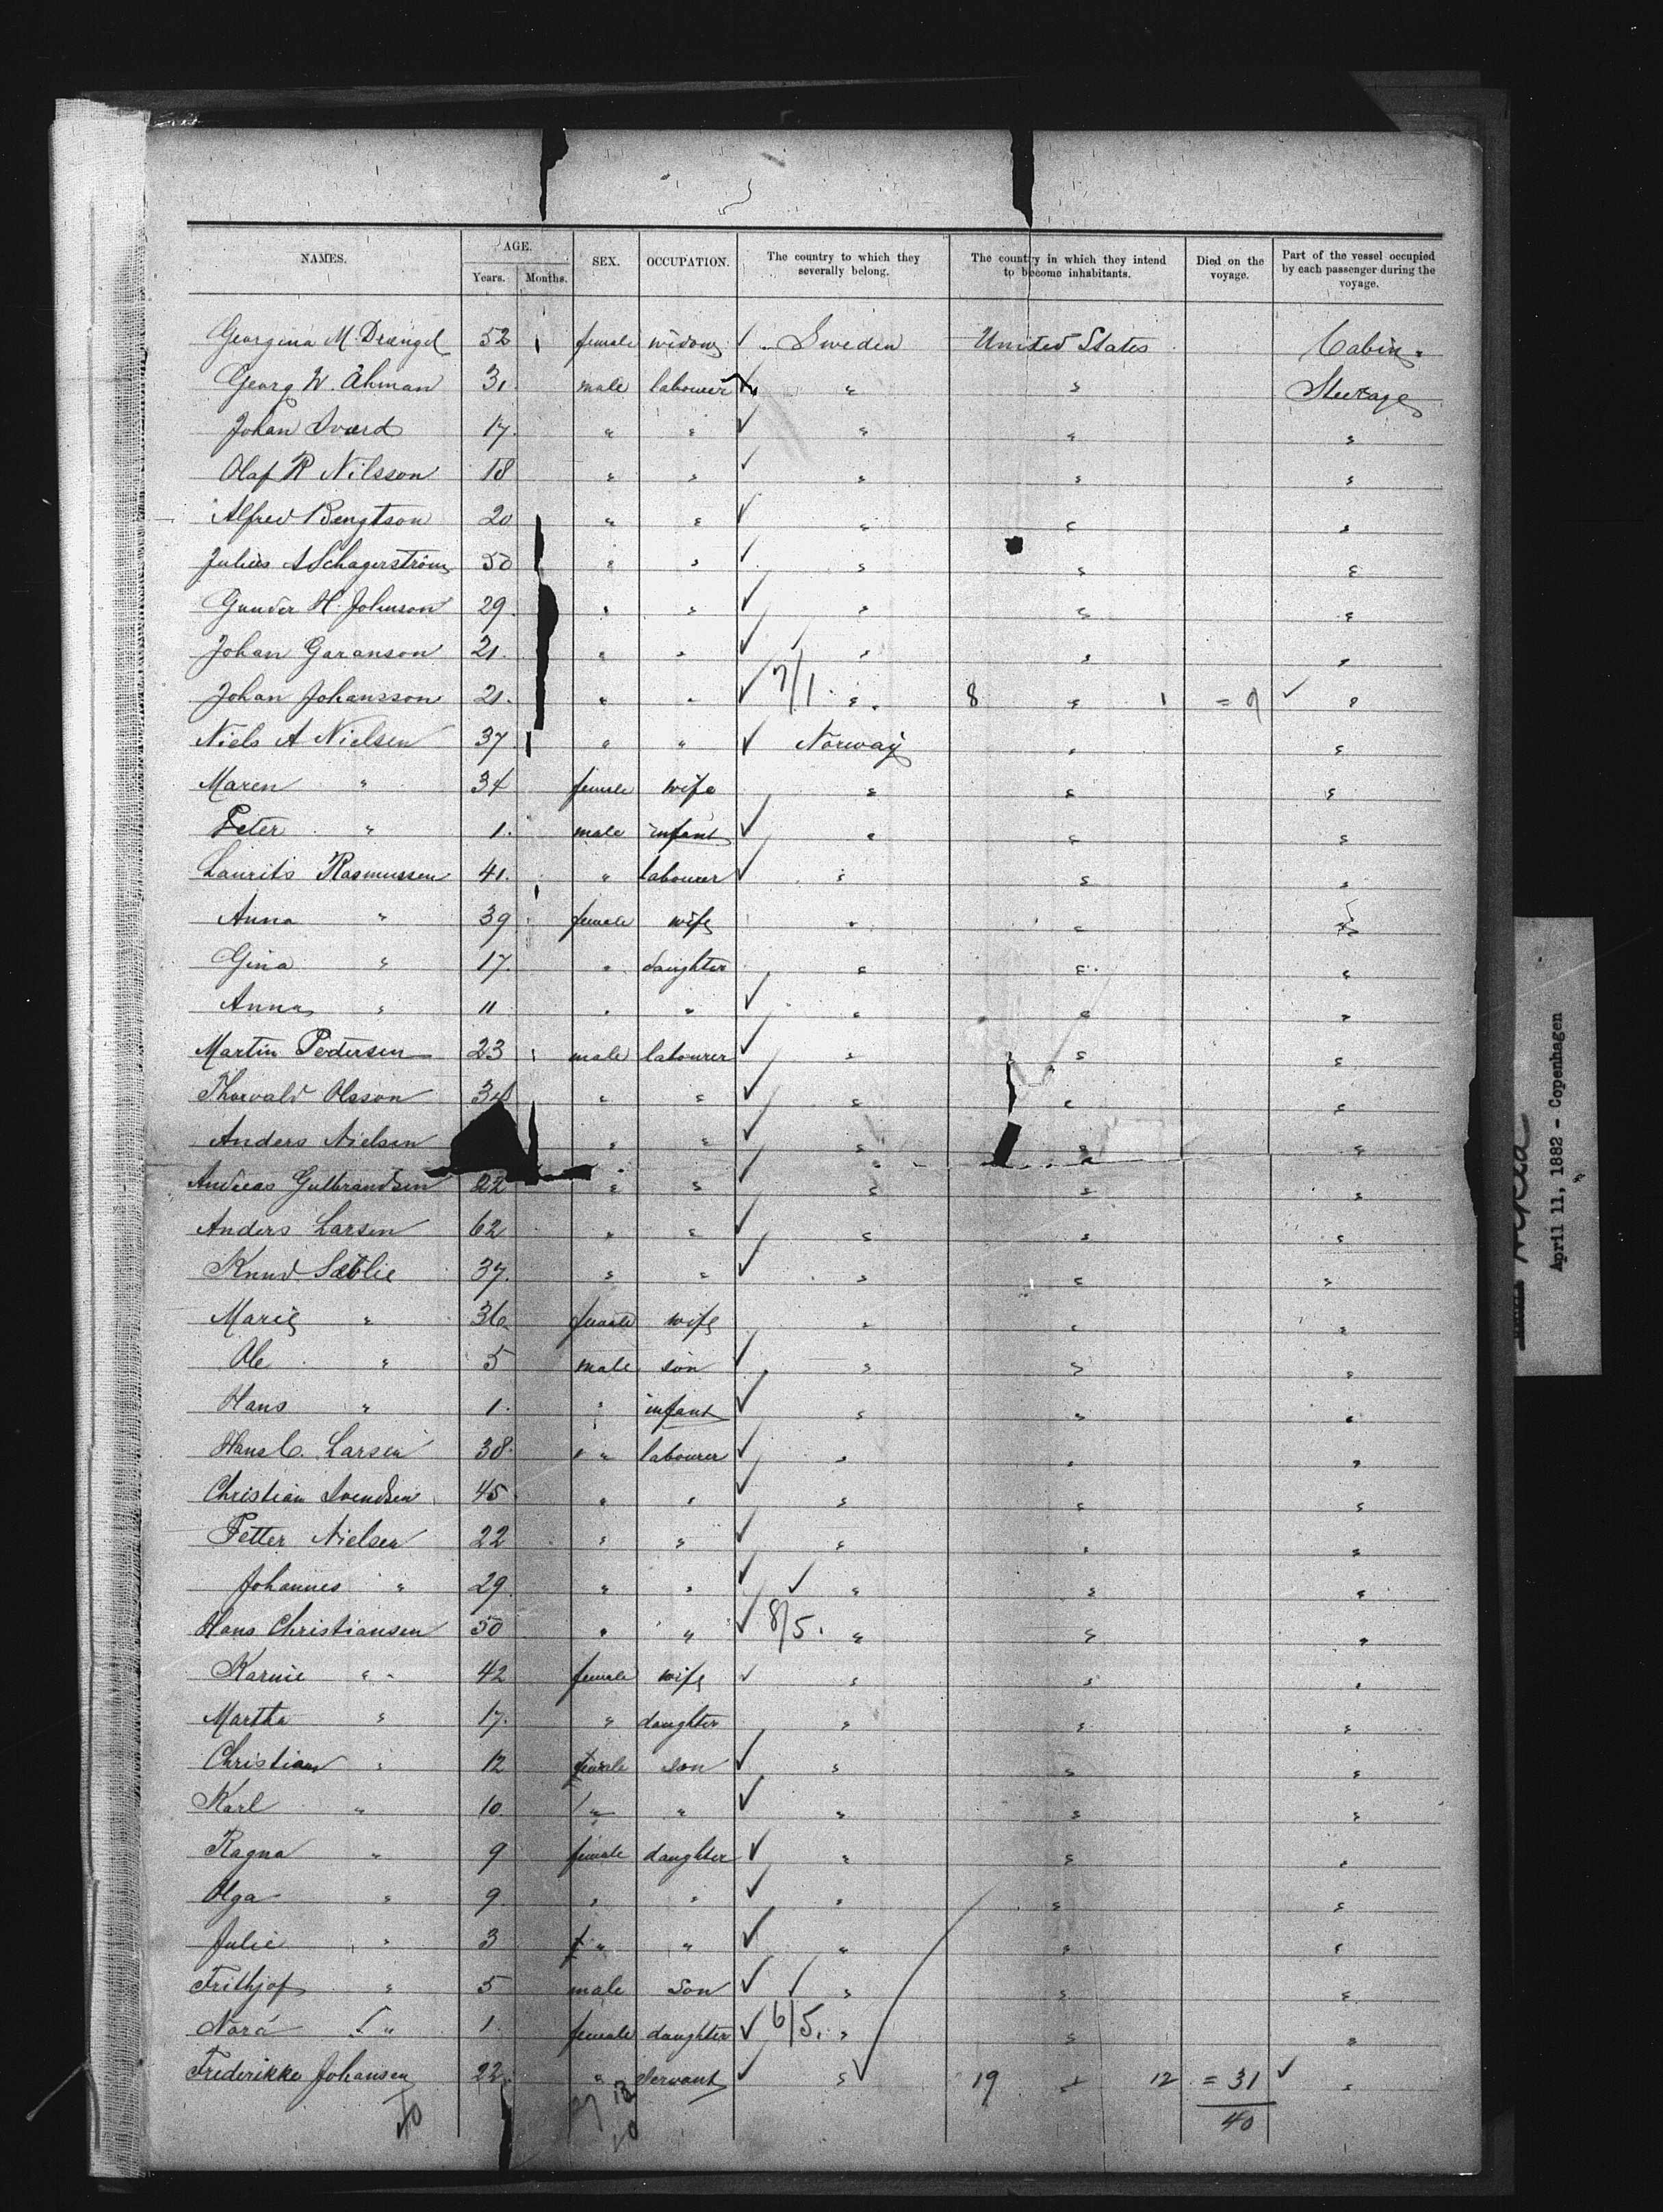 NAMES. AGE. SEX. OCCUPATION. The country to which they severally belong. The country in which they intend to become inhabitants. Died on the voyage. Part of the vessel occupied by each passenger during the voyage.
Years. Months.
Georgina M. Drangel 52 female widow ✓ Sweden United States Cabin
Georg W. Åhman 31 male labourer ✓ " " Steerage
Johan Sværd 17 " " ✓ " " "
Olaf R Nilsson 18 " " ✓ " " "
Alfred Bengtson 20 " " ✓ " " "
Julius A Schagerström 50 " " ✓ " " "
Gunder H. Johnson 29 " " ✓ " " "
Johan Garanson 21 " " ✓ " " "
Johan Johansson 21 " " ✓ 7/1 " 8 " 1 = 9 ✓ "
Niels A Nielsen 37 " " ✓ Norway " "
Maren " 34 female wife " " "
Peter " 1 male infant ✓ " " "
Laurits Rasmussen 41 " labourer ✓ " " "
Anna " 39 female wife " " "
Gina " 17 " daughter " " "
Anna " 11 " " ✓ " " "
Martin Pedersen 23 male labourer ✓ " " "
Thorvald Olsson " " ✓ " " "
Anders Nielsen " " ✓ " " "
Andreas Gulbrandsen 22 " " ✓ " " "
Anders Larsen 62 " " ✓ " " "
Knud Sæblie 37 " " ✓ " " "
Marie " 36 female wife " " "
Ole " 5 male son ✓ " " "
Hans " 1 " infant ✓ " " "
Hans C. Larsen 38 " labourer ✓ " " "
Christian Svendsen 45 " " ✓ " " "
Petter Nielsen 22 " " ✓ " " "
Johannes " 29 " " ✓ ✓ " " "
Hans Christiansen 50 " " ✓ 8/5. " " "
Karnie " 42 female wife ✓ " " "
Martha " 17 " daughter " " "
Christian " 12 female son ✓ " " "
Karl " 10 " " ✓ " " "
Ragna " 9 female daughter ✓ " " "
Olga " 9 " " ✓ " " "
Julie " 3 " " ✓ " " "
Frithjof " 5 male son ✓ " " "
Nora " 1 female daughter ✓ 6/5. " " "
Frederikke Johansen 22 " servant ✓ " ✓ 19 " 12 = 31 ✓ "
40
40
April 11, 1882 - Copenhagen